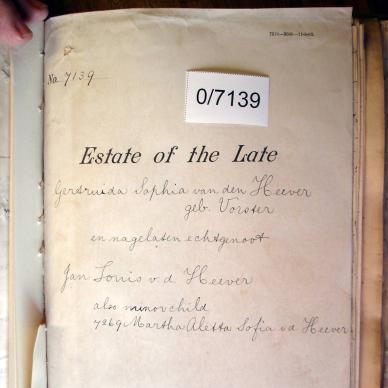 No 7139
0/7139
Estate of the Late
Gertruida Sophia van den Heever
geb. Vorster
en nagelaten echtgenoot
Jan Louis v. d. Heever
also minor child
7269 Martha Aletta Sofia v d Heever